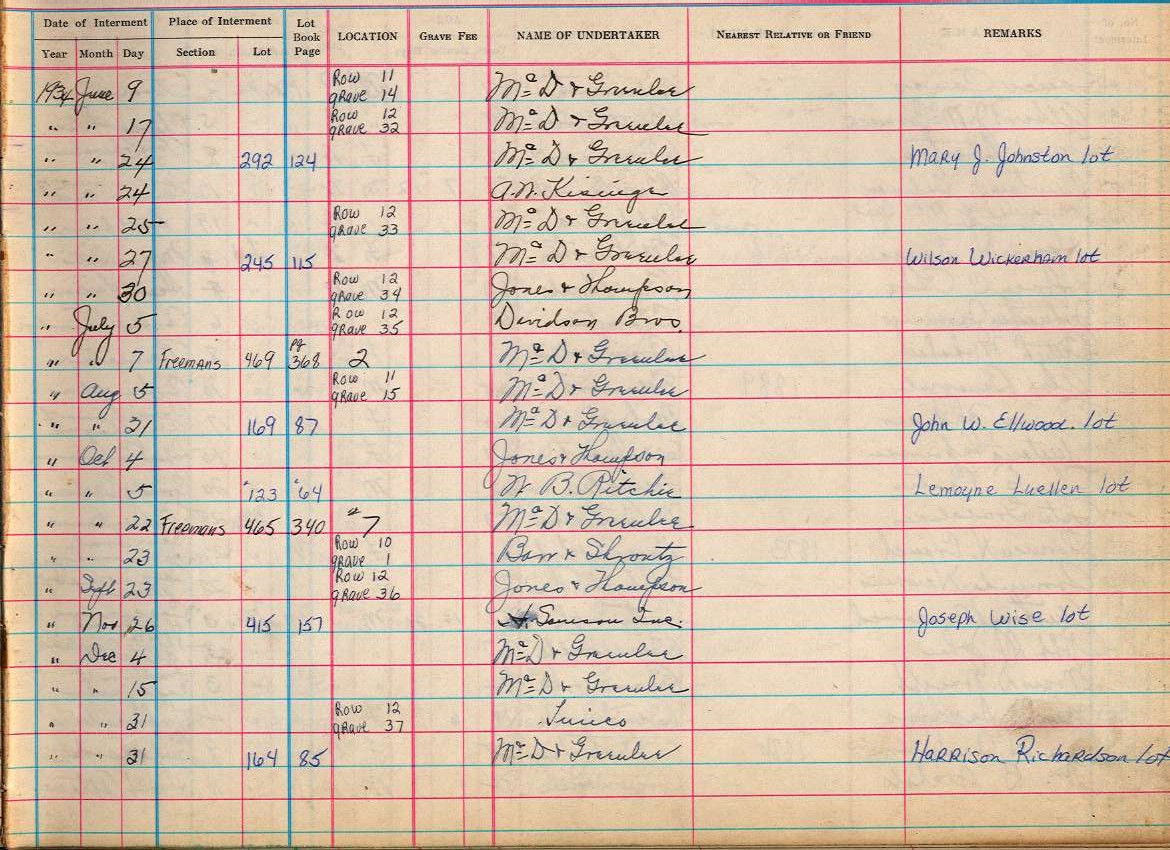 Date of Interment Place of Interment Lot Book Page LOCATION GRAVE FEE NAME OF UNDERTAKER NEAREST RELATIVE OR FRIEND REMARKS
Year Month Day Section Lot
1934 June 9 Row 11 grave 14 Mc D & Greenlee
" " 17 Row 12 grave 32 Mc D & Greenlee
" " 24 292 124 Mc D & Greenlee Mary J. Johnston lot
" " 24 A.N. Kisinger
" " 25 Row 12 grave 33 Mc D & Greenlee
" " 27 245 115 Mc D & Greenlee Wilson Wickerham lot
" " 30 Row 12 grave 34 Jones & Thompson
" July 5 Row 12 grave 35 Davidson Bros.
" " 7 Freemans 469 pg 368 2 Mc D & Greenlee
" Aug 5 Row 11 grave 15 Mc D & Greenlee
" " 31 169 87 Mc D & Greenlee John W. Ellwood. lot
" Oct 4 Jones & Thompson
" " 5 "123 "64 B. Ritchie Lemoyne Luellen lot
" " 22 Freemans 465 340 " 7 Mc D & Greenlee
" " 23 Row 10 grave 1 Barr & Shrontz
" Sept 23 Row 12 grave 36 Jones & Thompson
" Nov 26 415 157 Samson Inc. Joseph Wise lot
" Dec 4 Mc D & Greenlee
" " 15 Mc D & Greenlee
" " 31 Row 12 grave 37
" " 31 164 85 Mc D & Greenlee Harrison Richardson lot